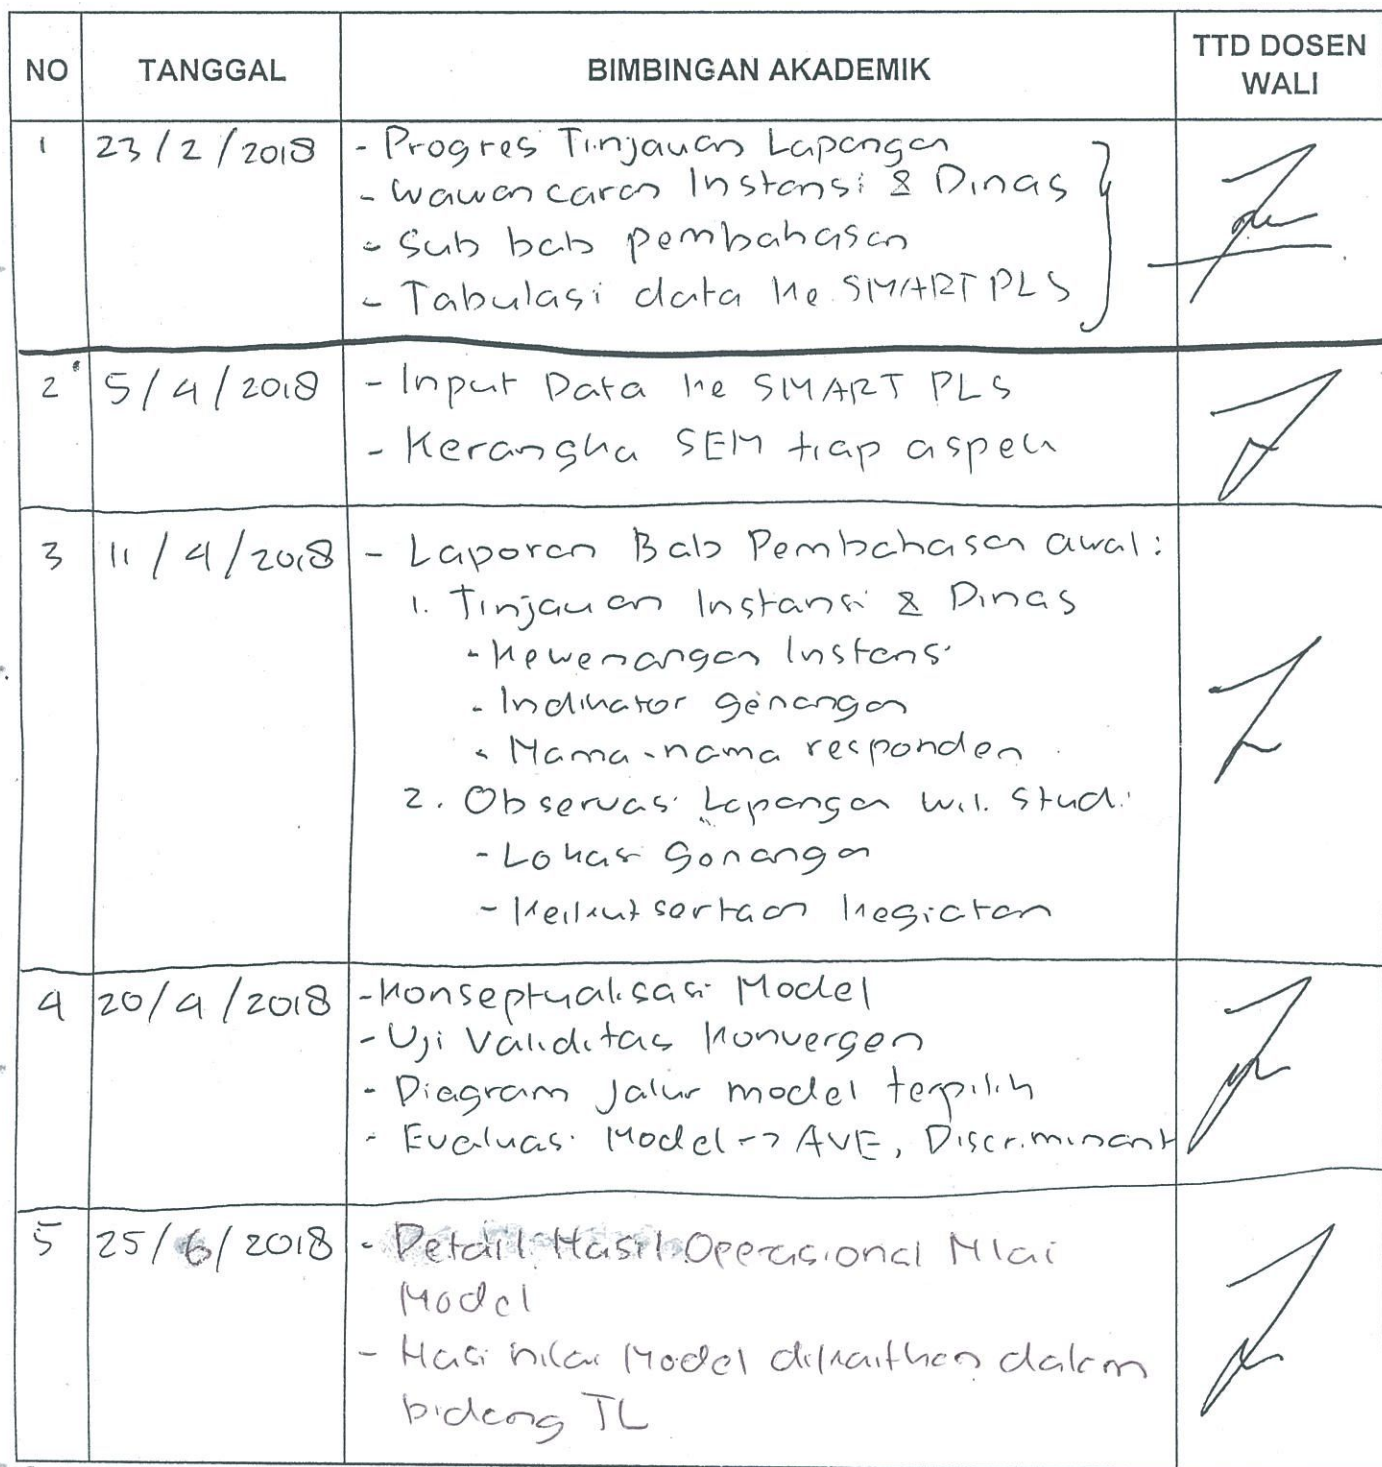 NO TANGGAL BIMBINGAN AKADEMIK TTD DOSEN WALI
1 23/2/2018 - Progres Tinjauan Lapangan
- Wawancaran Instansi & Dinas
- Sub bab pembahasan
- Tabulasi data ke SMART PLS
2 5/4/2018 - Input Data ke SMART PLS
- Kerangka SEM tiap aspek
3 11/4/2018 - Laporan Bab Pembahasan awal:
1. Tinjauan Instansi & Dinas
- Kewenangan Instansi
- Indikator genangan
- Nama-nama responden
2. Observasi Lapangan wil. Studi
- Lokasi Genangan
- Keikutsertaan kegiatan
4 20/4/2018 - Konseptualisasi Model
- Uji Validitas Konvergen
- Diagram Jalur model terpilih
- Evaluasi Model -> AVE, Discriminant
5 25/6/2018 - Detail Hasil Operasional Nilai
Model
- Hasi nilai Model dikaitkan dalam
bidang TL